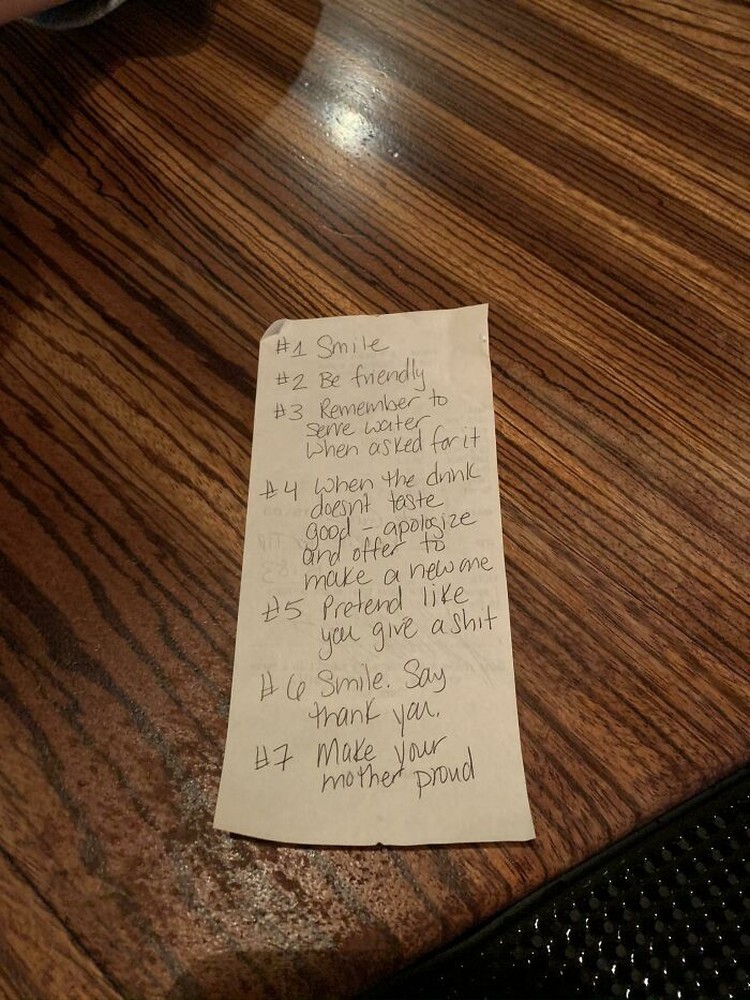 #1 Smile
#2 Be friendly
#3 Remember to
serve water
when asked for it
#4 When the drink
doesnt taste
good - apologize
and offer to
make a new one
#5 Pretend like
you give a shit
#6 Smile. Say
thank you.
#7 Make your
mother proud